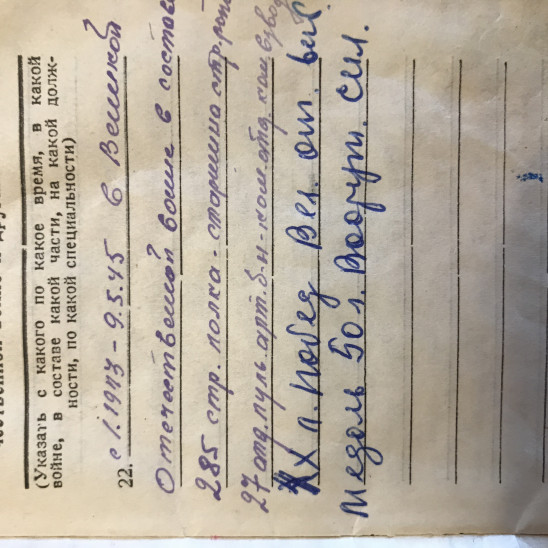 (Указать с какого по какое время, в какой
войне, в составе какой части, на какой долж-
ности, по какой специальности)
22. с 1.1943 - 9.5.45 в Великой
Отечественной войне в составе
285 стр. полка - старшина стр. роты
27 отд. пуль. арт. б-н - ком. отд. ком. взвод
XX л. побед Вел. от.
Медаль 50 л. Вооруж. сил.